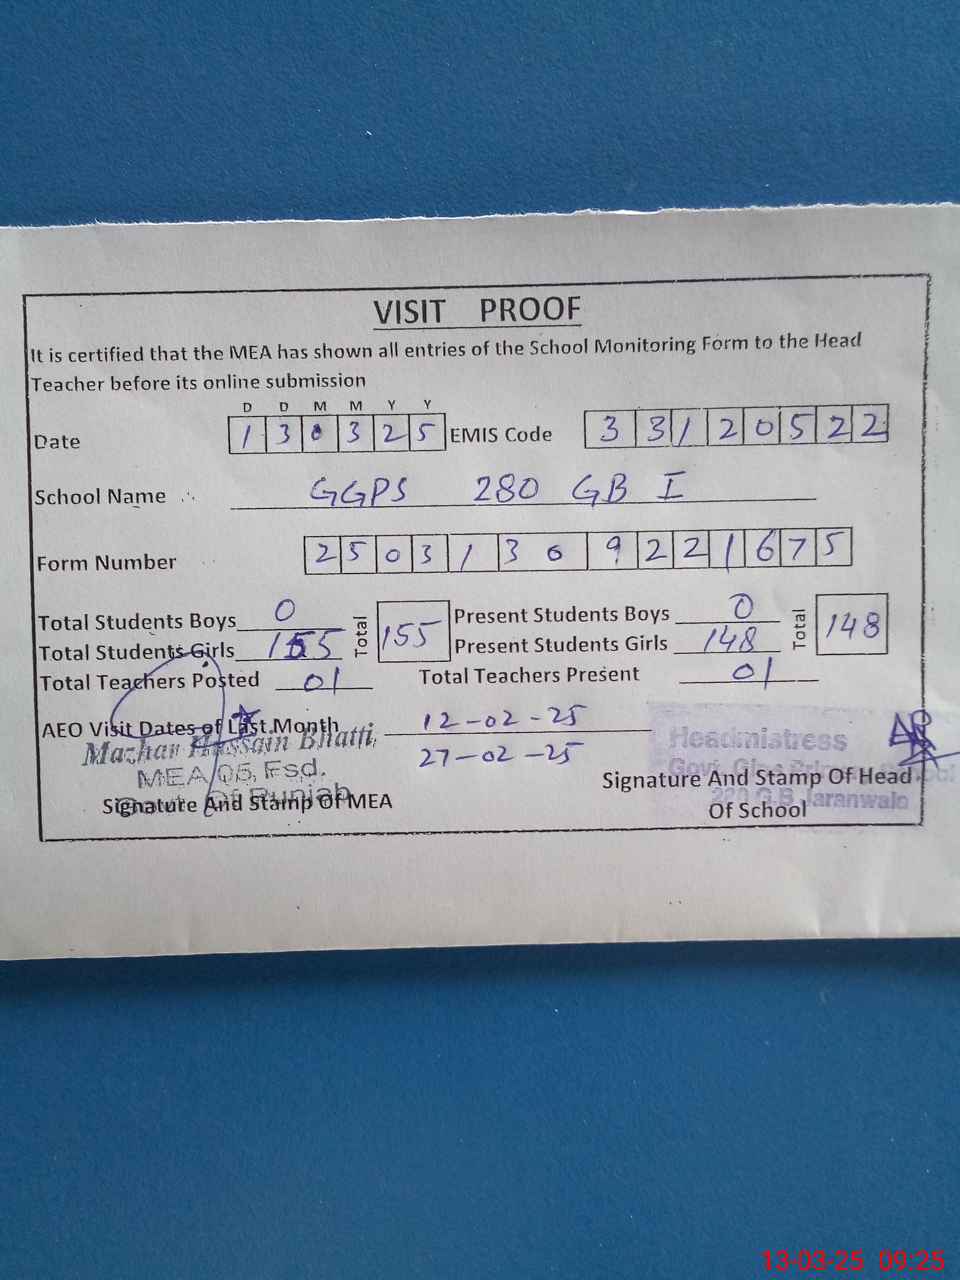 VISIT PROOF
It is certified that the MEA has shown all entries of the School Monitoring Form to the Head
Teacher before its online submission
D D M M Y Y
Date 1 3 0 3 2 5 EMIS Code 3 3 1 2 0 5 2 2
School Name GGPS 280 GB I
Form Number 2 5 0 3 1 3 0 9 2 2 1 6 7 5
Total Students Boys 0 Total 155 Present Students Boys 0 Total 148
Total Students Girls 155 Present Students Girls 148
Total Teachers Posted 01 Total Teachers Present 01
AEO Visit Dates of Last Month 12-02-25
27-02-25
Mazhar Hussain Bhatti,
MEA/05, Fsd.
Of Punjab
Signature And Stamp Of MEA
Headmistress
Govt. Girls Primary
G.B Jaranwala
Signature And Stamp Of Head
Of School
13-03-25 09:25